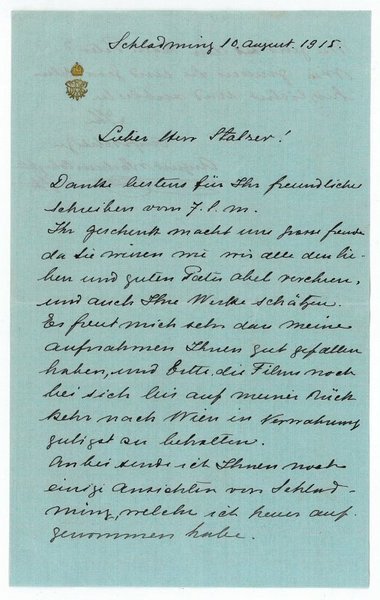 Schladming 10. August. 1915.
Lieber Herr Stalzer!
Danke bestens für Ihr freundliches
Schreiben vom 7. l. m.
Ihr geschenk macht uns grosse freude
da Sie wissen wie wir alle den lie-
ben und guten Pater Abel verehren,
und auch Ihre Werke schätzen.
Es freut mich sehr dass meine
aufnahmen Ihnen gut gefallen
haben, und bitte, die Films noch
bei sich bis auf meiner Rück
kehr nach Wien in Verwahrung
gütigst zu behalten.
Anbei sende ich Ihnen noch
einige Ansichten von Schlad-
ming, welche ich heuer auf-
genommen habe.